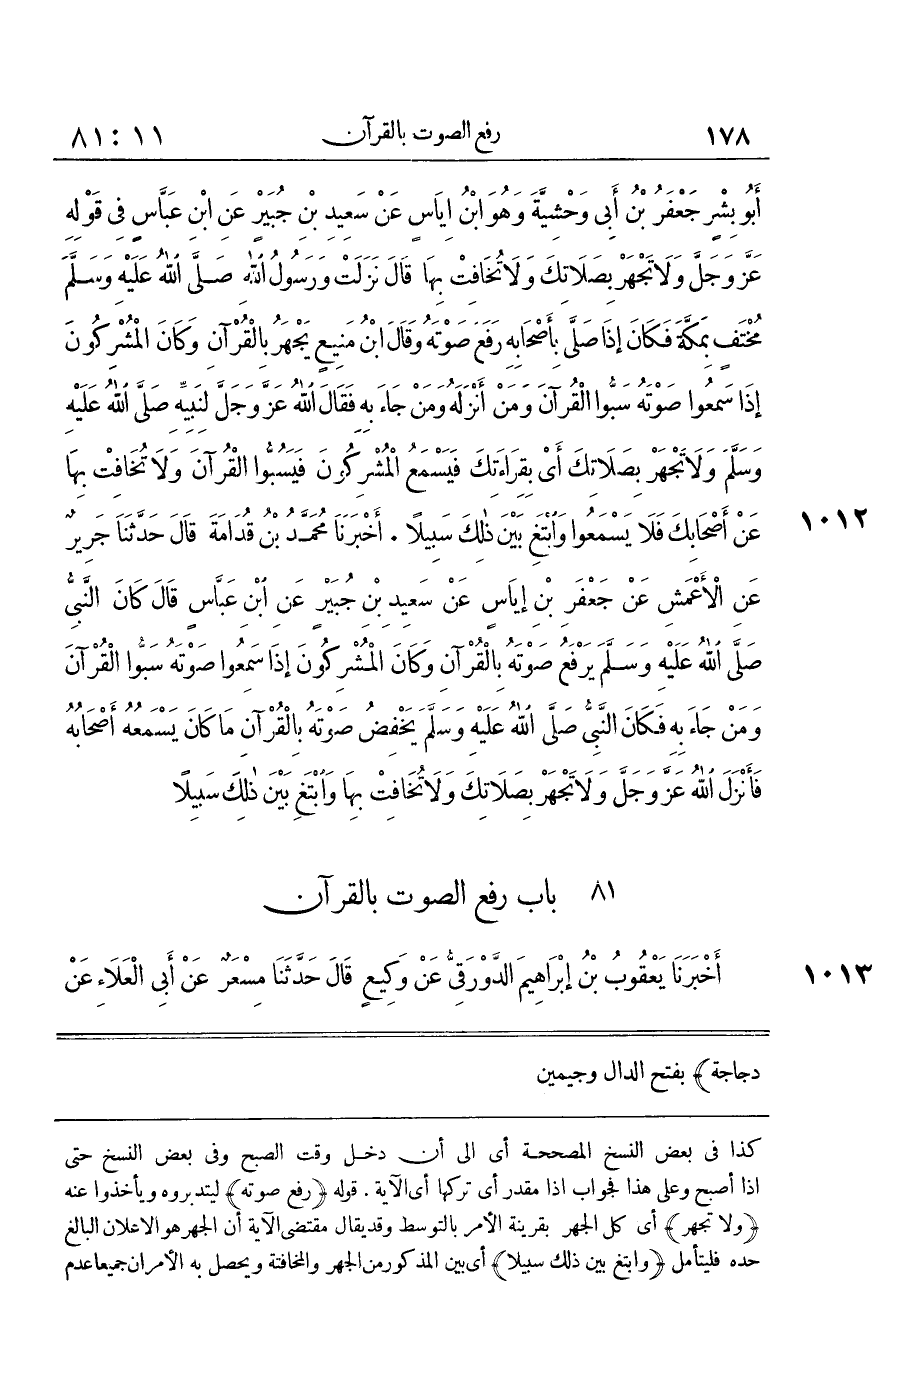 ١٧٨ رفع الصوت بالقرآن ١١ : ٨١
أَبُو بِشْرٍ جَعْفَرُ بْنُ أَبِى وَحْشِيَّةَ وَهُوَ ابْنُ إِيَاسٍ عَنْ سَعِيدِ بْنِ جُبَيْرٍ عَنِ ابْنِ عَبَّاسٍ فِى قَوْلِهِ
عَزَّ وَجَلَّ وَلَا تَجْهَرْ بِصَلَاتِكَ وَلَا تُخَافِتْ بِهَا قَالَ نَزَلَتْ وَرَسُولُ اللهِ صَلَّى اللهُ عَلَيْهِ وَسَلَّمَ
مُخْتَفٍ بِمَكَّةَ فَكَانَ إِذَا صَلَّى بِأَصْحَابِهِ رَفَعَ صَوْتَهُ وَقَالَ ابْنُ مَنِيعٍ يَجْهَرُ بِالْقُرْآنِ وَكَانَ الْمُشْرِكُونَ
إِذَا سَمِعُوا صَوْتَهُ سَبُّوا الْقُرْآنَ وَمَنْ أَنْزَلَهُ وَمَنْ جَاءَ بِهِ فَقَالَ اللهُ عَزَّ وَجَلَّ لِنَبِيِّهِ صَلَّى اللهُ عَلَيْهِ
وَسَلَّمَ وَلَا تَجْهَرْ بِصَلَاتِكَ أَىْ بِقِرَاءَتِكَ فَيَسْمَعَ الْمُشْرِكُونَ فَيَسُبُّوا الْقُرْآنَ وَلَا تُخَافِتْ بِهَا
عَنْ أَصْحَابِكَ فَلَا يَسْمَعُوا وَابْتَغِ بَيْنَ ذٰلِكَ سَبِيلًا . أَخْبَرَنَا مُحَمَّدُ بْنُ قُدَامَةَ قَالَ حَدَّثَنَا جَرِيرٌ ١٠١٢
عَنِ الْأَعْمَشِ عَنْ جَعْفَرِ بْنِ إِيَاسٍ عَنْ سَعِيدِ بْنِ جُبَيْرٍ عَنِ ابْنِ عَبَّاسٍ قَالَ كَانَ النَّبِىُّ
صَلَّى اللهُ عَلَيْهِ وَسَلَّمَ يَرْفَعُ صَوْتَهُ بِالْقُرْآنِ وَكَانَ الْمُشْرِكُونَ إِذَا سَمِعُوا صَوْتَهُ سَبُّوا الْقُرْآنَ
وَمَنْ جَاءَ بِهِ فَكَانَ النَّبِىُّ صَلَّى اللهُ عَلَيْهِ وَسَلَّمَ يَخْفِضُ صَوْتَهُ بِالْقُرْآنِ مَا كَانَ يَسْمَعُهُ أَصْحَابُهُ
فَأَنْزَلَ اللهُ عَزَّ وَجَلَّ وَلَا تَجْهَرْ بِصَلَاتِكَ وَلَا تُخَافِتْ بِهَا وَابْتَغِ بَيْنَ ذٰلِكَ سَبِيلًا
٨١ باب رفع الصوت بالقرآن
أَخْبَرَنَا يَعْقُوبُ بْنُ إِبْرَاهِيمَ الدَّوْرَقِىُّ عَنْ وَكِيعٍ قَالَ حَدَّثَنَا مِسْعَرٌ عَنْ أَبِى الْعَلَاءِ عَنْ ١٠١٣
دجاجة﴾ بفتح الدال وجيمين
كذا فى بعض النسخ المصححة أى الى أن دخل وقت الصبح وفى بعض النسخ حتى
اذا أصبح وعلى هذا فجواب اذا مقدر أى تركها أى الآية . قوله ﴿رفع صوته﴾ ليتدبروه ويأخذوا عنه
﴿ولا تجهر﴾ أى كل الجهر بقرينة الأمر بالتوسط وقد يقال مقتضى الآية أن الجهر هو الاعلان البالغ
حده فليتأمل ﴿وابتغ بين ذلك سبيلا﴾ أى بين المذكور من الجهر والمخافتة ويحصل به الأمران جميعا عدم